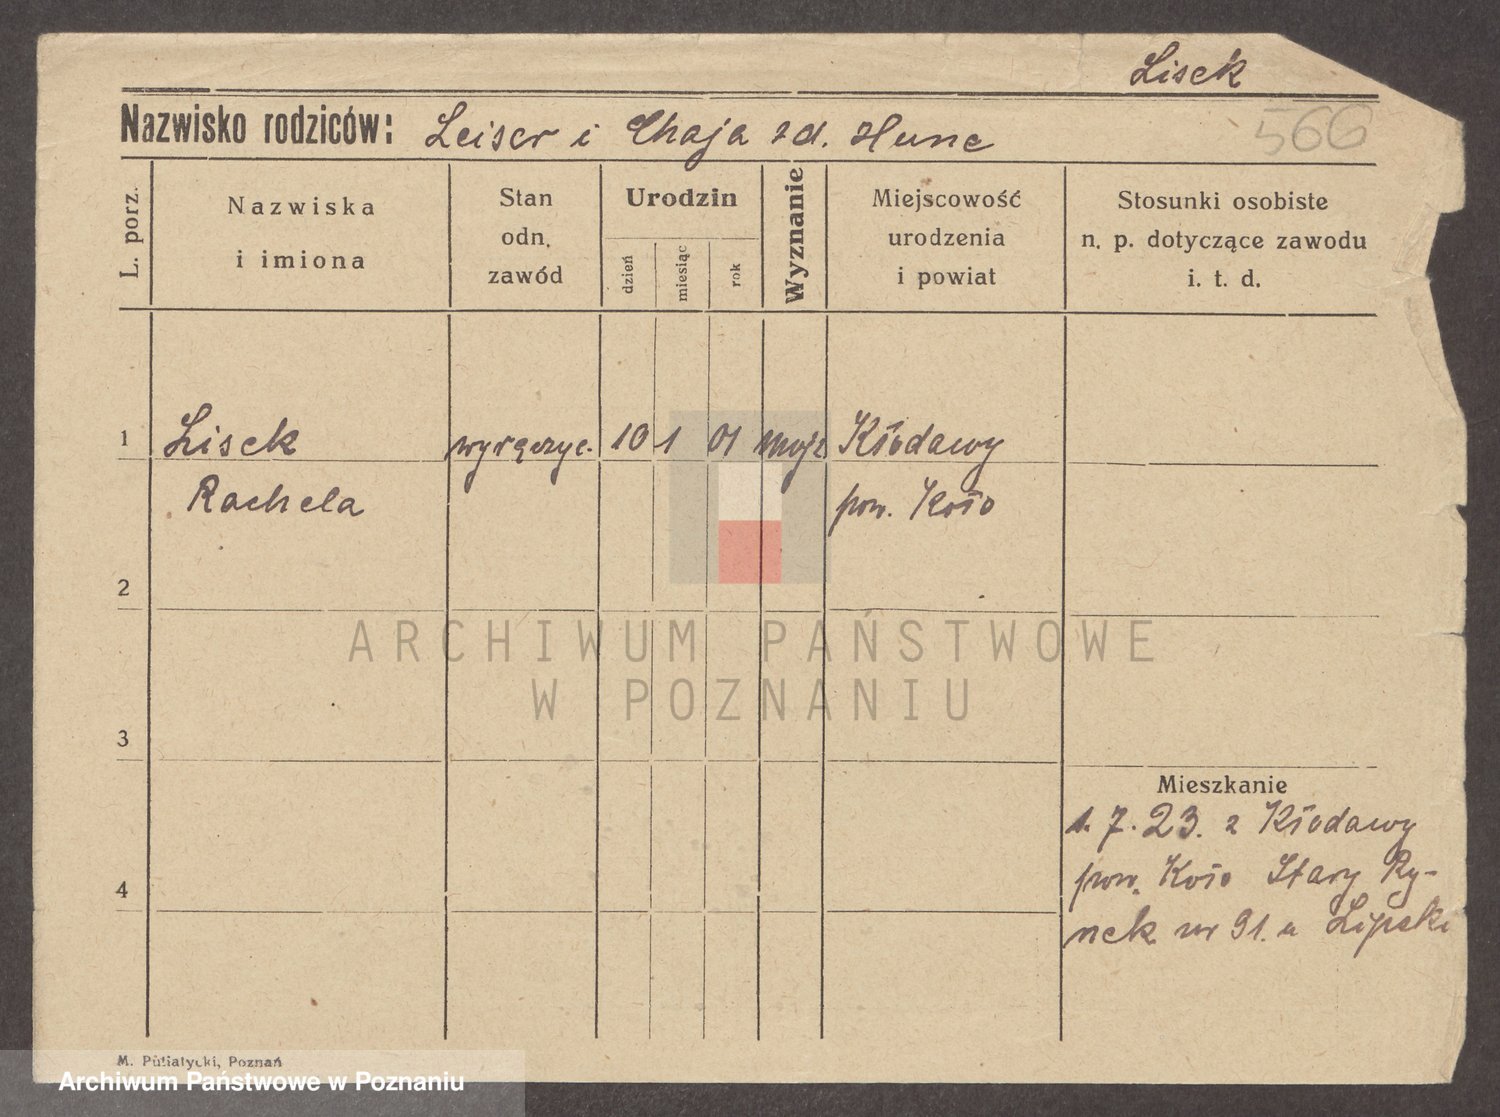 Lisek
Nazwisko rodziców: Leiser i Chaja zd. Hune
566
L. porz.
Nazwiska
i imiona
Stan
odn.
zawód
Urodzin
dzień
miesiąc
rok
Wyznanie
Miejscowość
urodzenia
i powiat
Stosunki osobiste
n. p. dotyczące zawodu
i. t. d.
1 Lisek wyręczyc. 10 1 01 mojż Kłodawy
Rachela pow. Koło
2
ARCHIWUM PAŃSTWOWE
W POZNANIU
3
Mieszkanie
1. 7. 23. z Kłodawy
pow. Koło Stary Ry-
4
nek nr 91. u Lipski
M. Putiatycki, Poznań
Archiwum Państwowe w Poznaniu